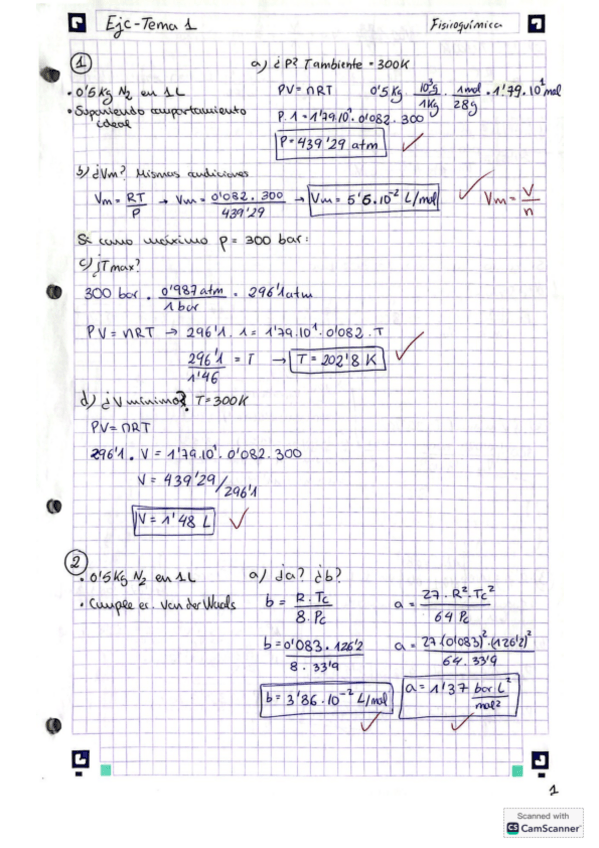 Ejc-Tema 1
Fisioquímica
1
• 0'5Kg N2 en 1L
• Suponiendo comportamiento ideal
a) ¿P? Tambiente = 300K
PV = nRT 0'5Kg · 10³g/1Kg · 1mol/28g = 1'79·10¹mol
P·1 = 1'79·10¹·0'082·300
P = 439'29 atm
b) ¿Vm? Mismas condiciones
Vm = RT/P → Vm = 0'082·300/439'29 → Vm = 5'6·10⁻² L/mol
Vm = V/n
Si como máximo P = 300 bar:
c) ¿Tmax?
300 bar · 0'987atm/1bar = 296'1atm
PV = nRT → 296'1·1 = 1'79·10¹·0'082·T
296'1/1'46 = T → T = 202'8 K
d) ¿V mínimo? T=300K
PV = nRT
296'1 · V = 1'79·10¹·0'082·300
V = 439'29/296'1
V = 1'48 L
2
• 0'5Kg N2 en 1L
• Cumple ec. Van der Waals
a) ¿a? ¿b?
b = R·Tc/8·Pc
a = 27·R²·Tc²/64 Pc
b = 0'083·126'2/8·33'9
a = 27·(0'083)²·(126'2)²/64·33'9
b = 3'86·10⁻² L/mol
a = 1'37 bar L²/mol²
1
Scanned with
CS CamScanner